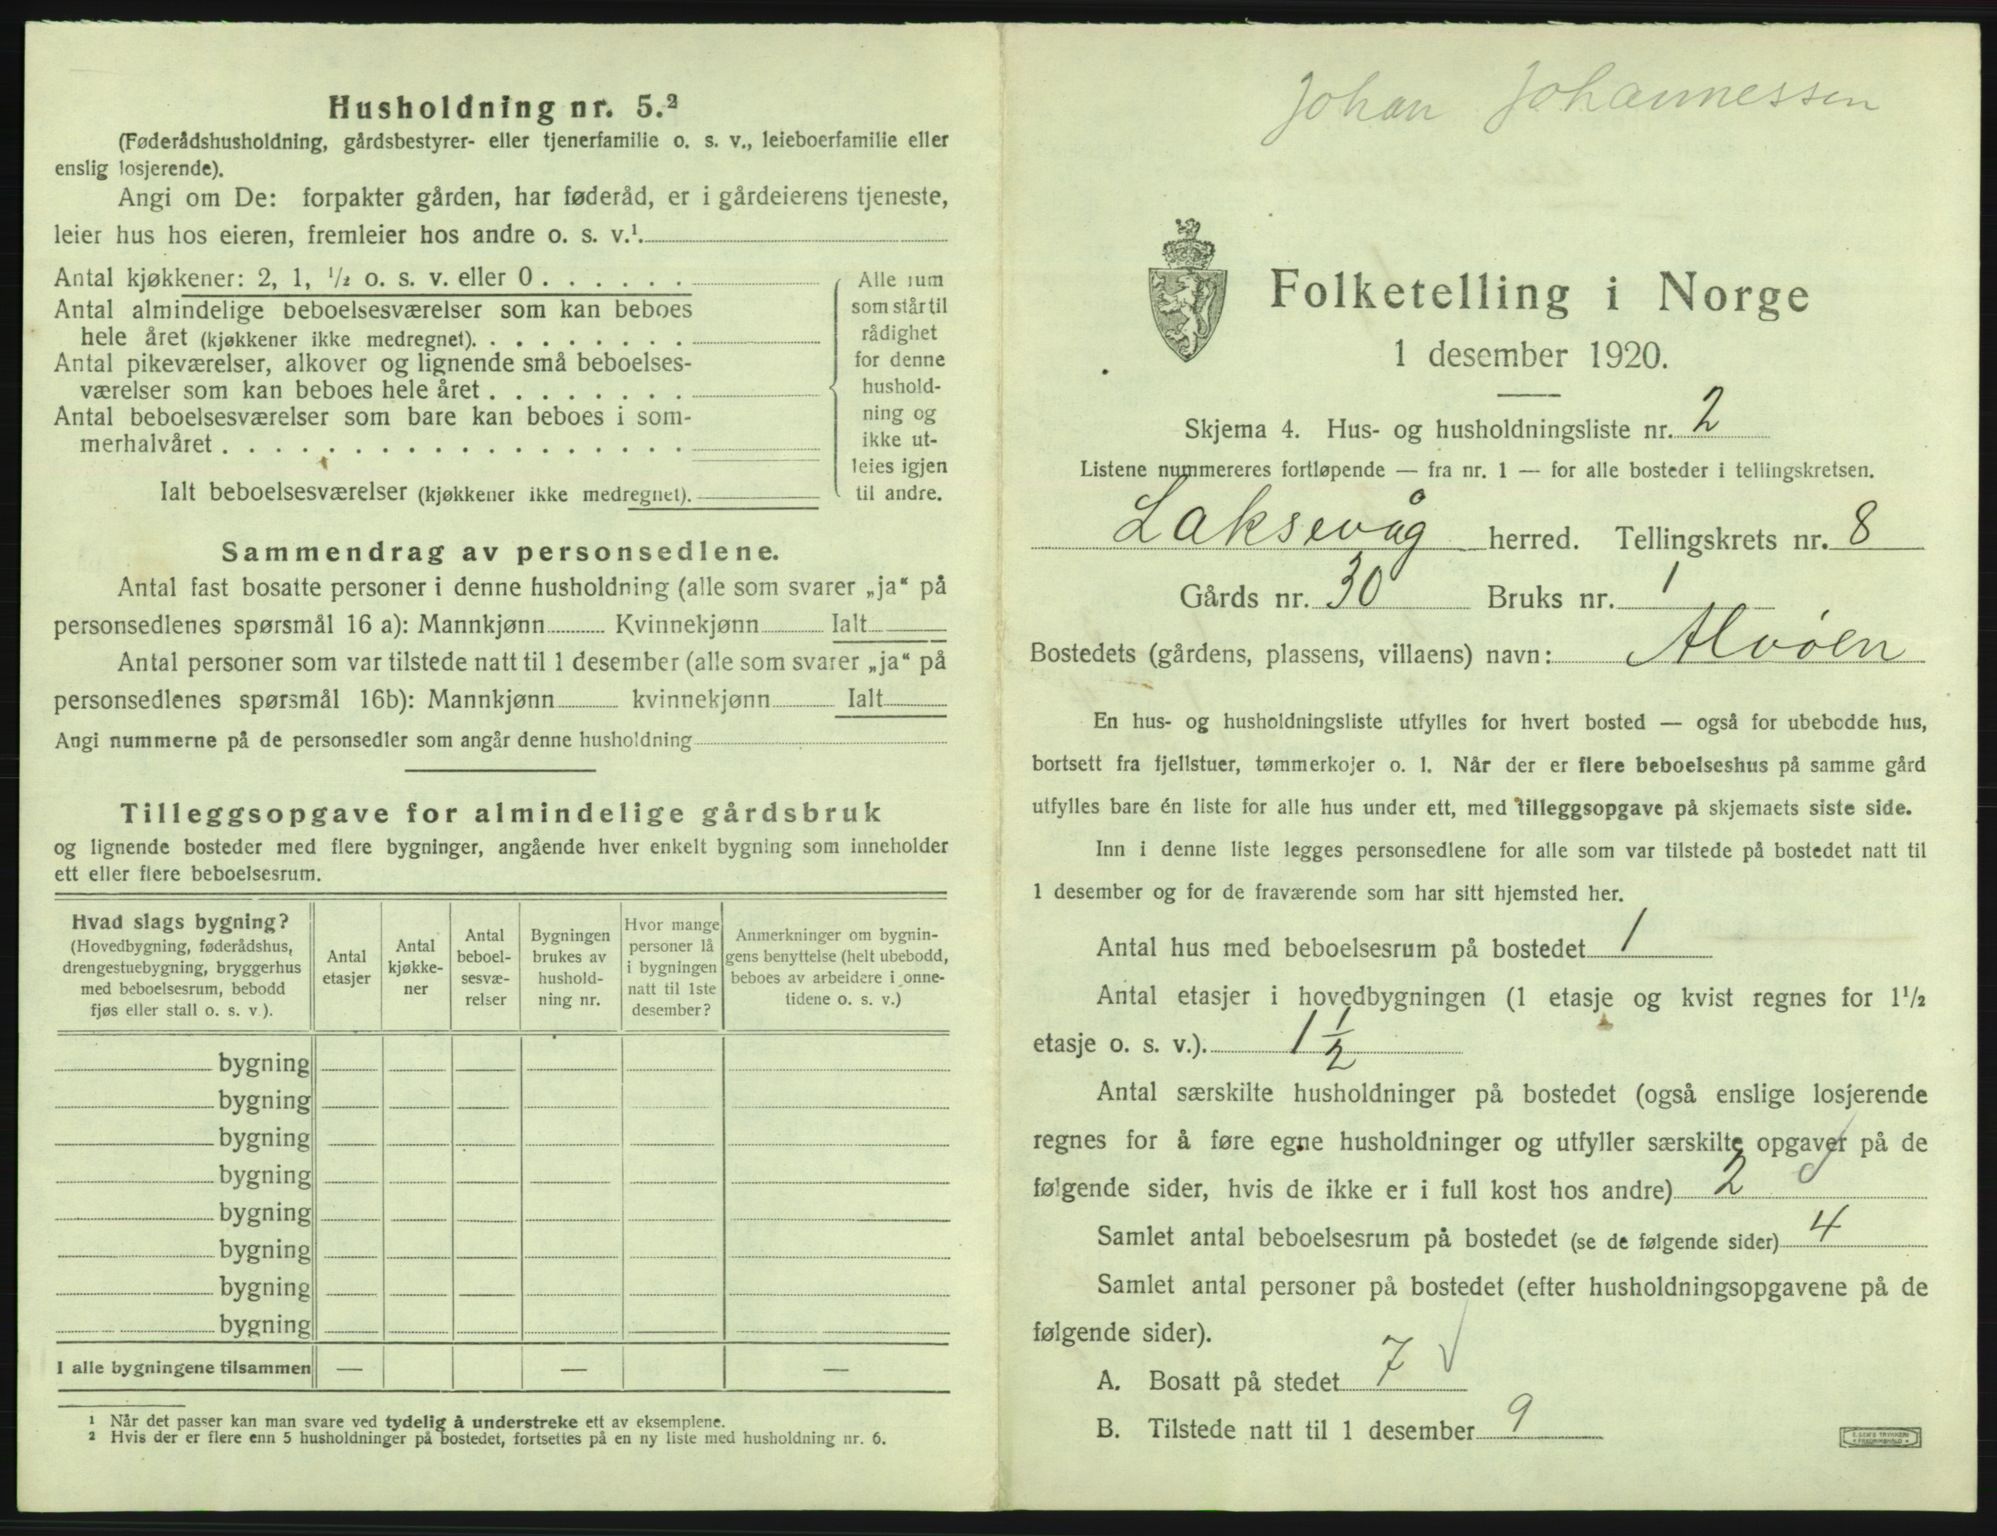 Husholdning nr. 5.²
(Føderådshusholdning, gårdsbestyrer- eller tjenerfamilie o. s. v., leieboerfamilie eller
enslig losjerende).
Angi om De: forpakter gården, har føderåd, er i gårdeierens tjeneste,
leier hus hos eieren, fremleier hos andre o. s. v.¹.
Antal kjøkkener: 2, 1, ½ o. s. v. eller 0 . . . . . .
Antal almindelige beboelsesværelser som kan beboes
hele året (kjøkkener ikke medregnet). . . . . . . . .
Antal pikeværelser, alkover og lignende små beboelses-
værelser som kan beboes hele året . . . . . . . .
Antal beboelsesværelser som bare kan beboes i som-
merhalvåret . . . . . . . . . . . . . . . . . .
Ialt beboelsesværelser (kjøkkener ikke medregnet).
Alle rum
som står til
rådighet
for denne
hushold-
ning og
ikke ut-
leies igjen
til andre.
Sammendrag av personsedlene.
Antal fast bosatte personer i denne husholdning (alle som svarer „ja“ på
personsedlenes spørsmål 16 a): Mannkjønn Kvinnekjønn Ialt
Antal personer som var tilstede natt til 1 desember (alle som svarer „ja“ på
personsedlenes spørsmål 16b): Mannkjønn kvinnekjønn Ialt
Angi nummerne på de personsedler som angår denne husholdning
Tilleggsopgave for almindelige gårdsbruk
og lignende bosteder med flere bygninger, angående hver enkelt bygning som inneholder
ett eller flere beboelsesrum.
Hvad slags bygning?
(Hovedbygning, føderådshus,
drengestuebygning, bryggerhus
med beboelsesrum, bebodd
fjøs eller stall o. s. v.).
Antal
etasjer
Antal
kjøkke-
ner
Antal
beboel-
sesvæ-
relser
Bygningen
brukes av
hushold-
ning nr.
Hvor mange
personer lå
i bygningen
natt til 1ste
desember?
Anmerkninger om bygnin-
gens benyttelse (helt ubebodd,
beboes av arbeidere i onne-
tidene o. s. v.)
bygning
bygning
bygning
bygning
bygning
bygning
bygning
bygning
I alle bygningene tilsammen — — —
¹ Når det passer kan man svare ved tydelig å understreke ett av eksemplene.
² Hvis der er flere enn 5 husholdninger på bostedet, fortsettes på en ny liste med husholdning nr. 6.
Johan Johannessen
Folketelling i Norge
1 desember 1920.
Skjema 4. Hus- og husholdningsliste nr. 2
Listene nummereres fortløpende — fra nr. 1 — for alle bosteder i tellingskretsen.
Laksevåg herred. Tellingskrets nr. 8
Gårds nr. 30 Bruks nr. 1
Bostedets (gårdens, plassens, villaens) navn: Alvøen
En hus- og husholdningsliste utfylles for hvert bosted — også for ubebodde hus,
bortsett fra fjellstuer, tømmerkojer o. l. Når der er flere beboelseshus på samme gård
utfylles bare én liste for alle hus under ett, med tilleggsopgave på skjemaets siste side.
Inn i denne liste legges personsedlene for alle som var tilstede på bostedet natt til
1 desember og for de fraværende som har sitt hjemsted her.
Antal hus med beboelsesrum på bostedet 1
Antal etasjer i hovedbygningen (1 etasje og kvist regnes for 1½
etasje o. s. v.). 1½
Antal særskilte husholdninger på bostedet (også enslige losjerende
regnes for å føre egne husholdninger og utfyller særskilte opgaver på de
følgende sider, hvis de ikke er i full kost hos andre) 2
Samlet antal beboelsesrum på bostedet (se de følgende sider) 4
Samlet antal personer på bostedet (efter husholdningsopgavene på de
følgende sider).
A. Bosatt på stedet 7
B. Tilstede natt til 1 desember 9